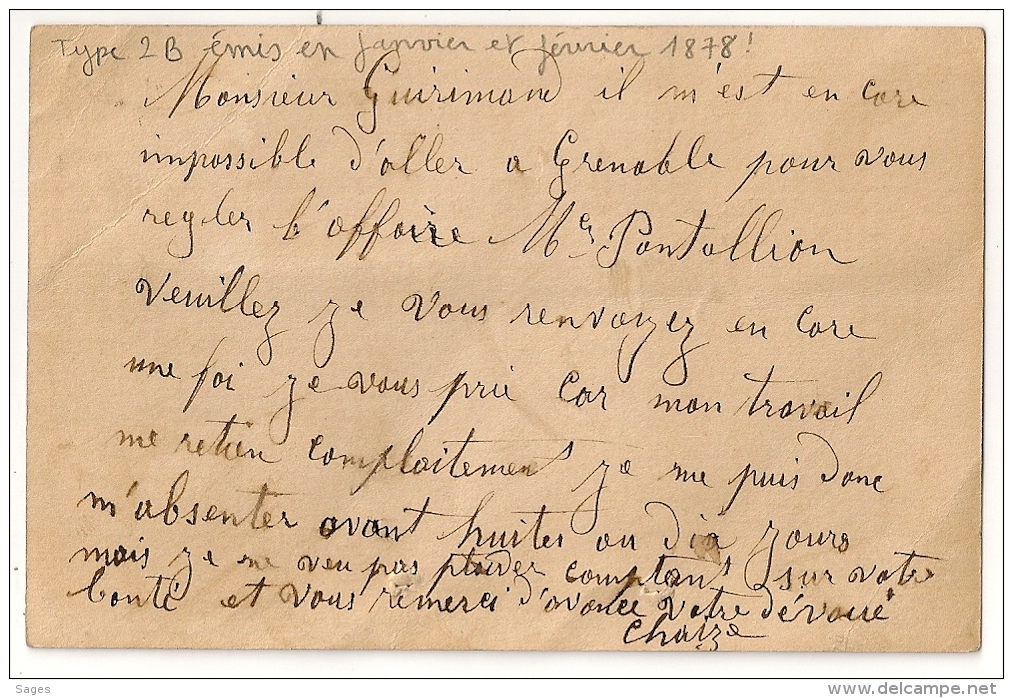 Type 2B émis en Janvier et février 1878!
Monsieur Guirimand il m'est en core
impossible d'aller a Grenoble pour vous
regler l'affaire Mr Pontallion
veuillez je vous renvoyez en core
une foi je vous prie car mon travail
me retien complaitement je me puis donc
m'absenter avant huites ou dix jours
mais je ne veu pas plaider comptant sur votre
bonté et vous remerci d'avance votre dévoué
Chaize
Sages
delcampe.net